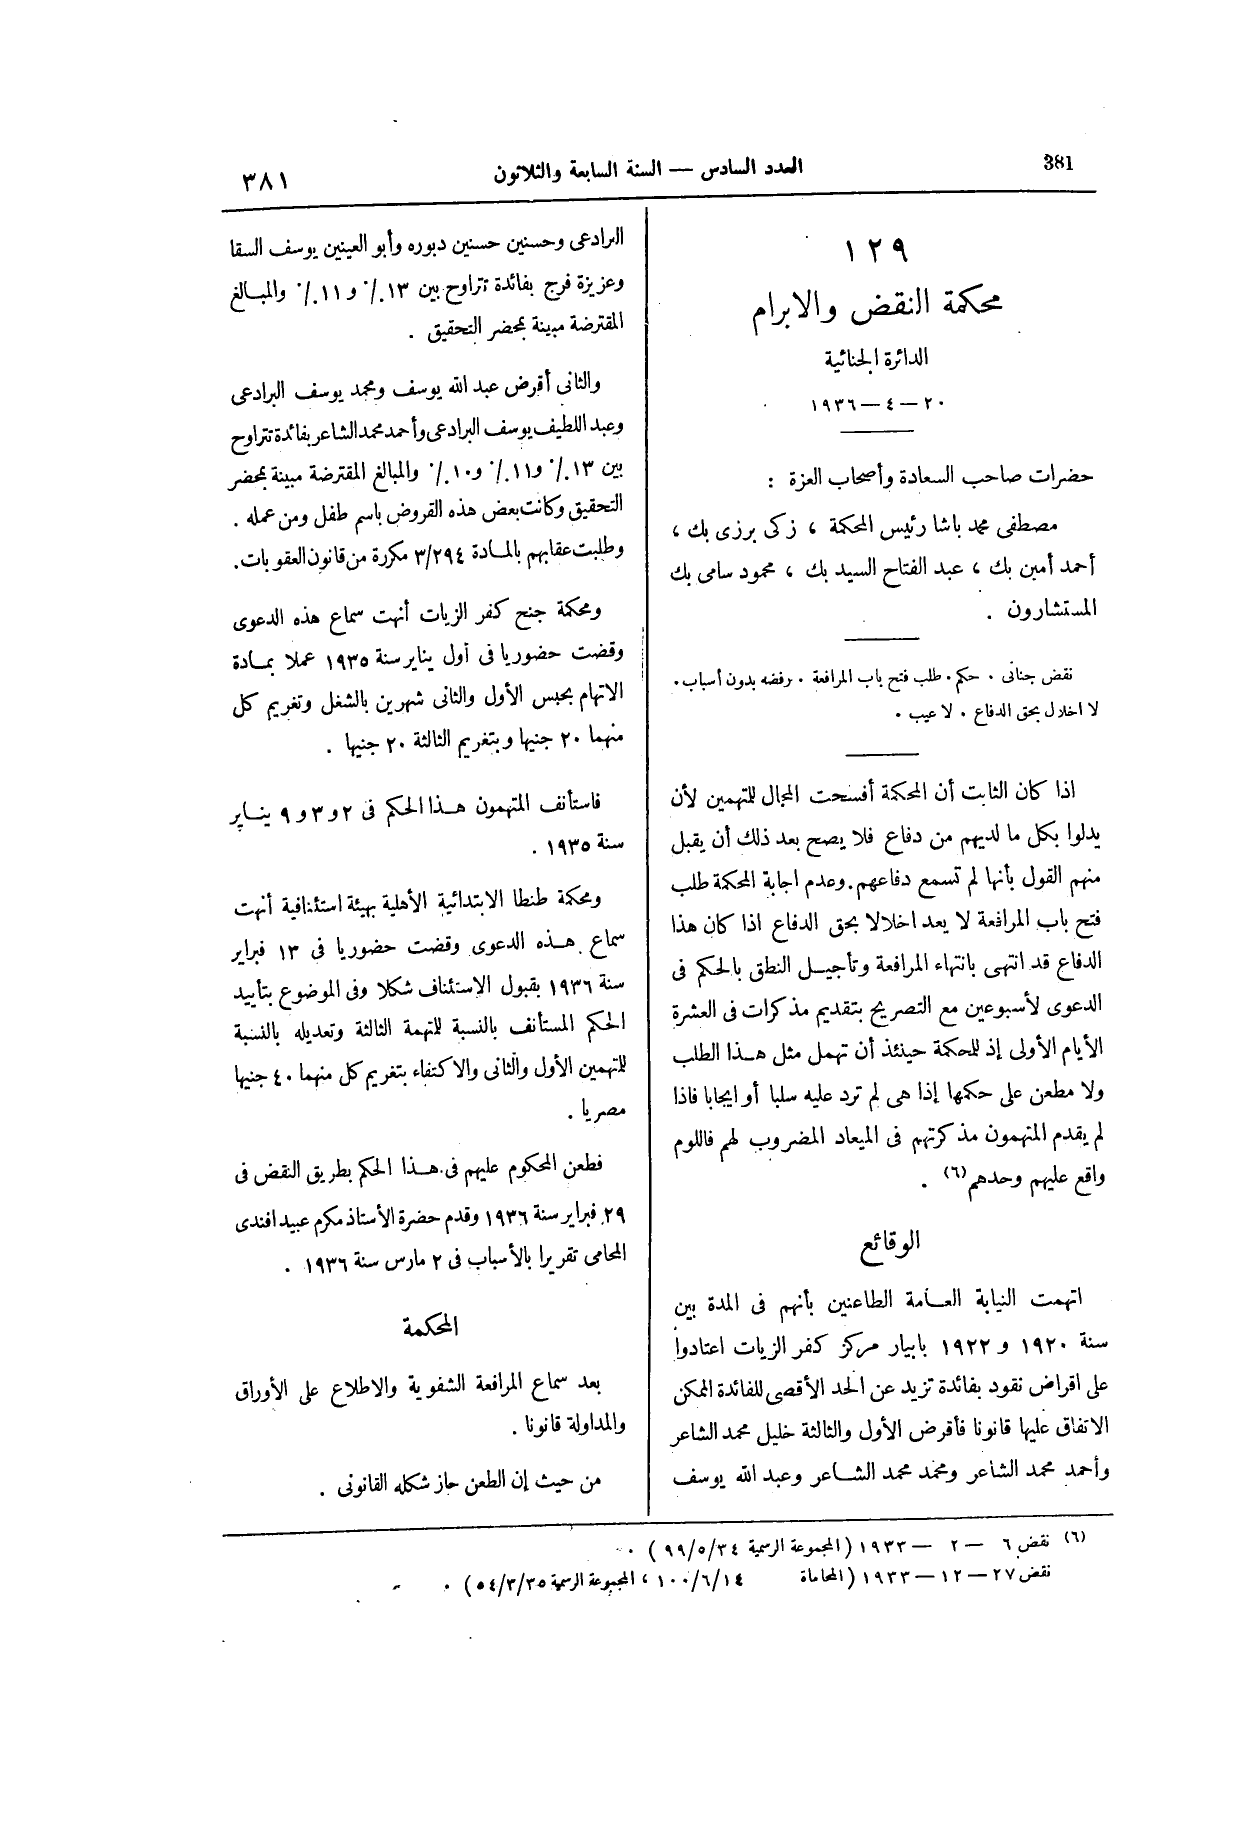 381
العدد السادس — السنة السابعة والثلاثون
٣٨١
١٢٩
محكمة النقض والابرام
الدائرة الجنائية
٢٠ — ٤ — ١٩٣٦
حضرات صاحب السعادة وأصحاب العزة :
مصطفى محمد باشا رئيس المحكمة ، زكى برزى بك ،
أحمد أمين بك ، عبد الفتاح السيد بك ، محمود سامى بك
المستشارون .
نقض جنائى . حكم . طلب فتح باب المرافعة . رفضه بدون أسباب .
لا اخلال بحق الدفاع . لا عيب .
اذا كان الثابت أن المحكمة أفسحت المجال للمتهمين لأن
يدلوا بكل ما لديهم من دفاع فلا يصح بعد ذلك أن يقبل
منهم القول بأنها لم تسمع دفاعهم . وعدم اجابة المحكمة طلب
فتح باب المرافعة لا يعد اخلالا بحق الدفاع اذا كان هذا
الدفاع قد انتهى بانتهاء المرافعة وتأجيل النطق بالحكم فى
الدعوى لأسبوعين مع التصريح بتقديم مذكرات فى العشرة
الأيام الأولى إذ للمحكمة حينئذ أن تهمل مثل هذا الطلب
ولا مطعن على حكمها إذا هى لم ترد عليه سلبا أو ايجابا فاذا
لم يقدم المتهمون مذكرتهم فى الميعاد المضروب لهم فاللوم
واقع عليهم وحدهم (٦) .
الوقائع
اتهمت النيابة العامة الطاعنين بأنهم فى المدة بين
سنة ١٩٢٠ و ١٩٢٢ بابيار مركز كفر الزيات اعتادوا
على اقراض نقود بفائدة تزيد عن الحد الأقصى للفائدة الممكن
الاتفاق عليها قانونا فأقرض الأول والثالثة خليل محمد الشاعر
وأحمد محمد الشاعر ومحمد محمد الشاعر وعبد الله يوسف
البرادعى وحسنين حسنين دبوره وأبو العينين يوسف السقا
وعزيزة فرج بفائدة تتراوح بين ١٣ ٪ و ١١ ٪ والمبالغ
المقترضة مبينة بمحضر التحقيق .
والثانى أقرض عبد الله يوسف ومحمد يوسف البرادعى
وعبد اللطيف يوسف البرادعى وأحمد محمد الشاعر بفائدة تتراوح
بين ١٣ ٪ و١١ ٪ و١٠ ٪ والمبالغ المقترضة مبينة بمحضر
التحقيق وكانت بعض هذه القروض باسم طفل ومن عمله .
وطلبت عقابهم بالمادة ٣/٢٩٤ مكررة من قانون العقوبات .
ومحكمة جنح كفر الزيات أنهت سماع هذه الدعوى
وقضت حضوريا فى أول يناير سنة ١٩٣٥ عملا بمادة
الاتهام بحبس الأول والثانى شهرين بالشغل وتغريم كل
منهما ٢٠ جنيها وبتغريم الثالثة ٢٠ جنيها .
فاستأنف المتهمون هذا الحكم فى ٢ و ٣ و ٩ يناير
سنة ١٩٣٥ .
ومحكمة طنطا الابتدائية الأهلية بهيئة استئنافية أنهت
سماع هذه الدعوى وقضت حضوريا فى ١٣ فبراير
سنة ١٩٣٦ بقبول الاستئناف شكلا وفى الموضوع بتأييد
الحكم المستأنف بالنسبة للمتهمة الثالثة وتعديله بالنسبة
للمتهمين الأول والثانى والاكتفاء بتغريم كل منهما ٤٠ جنيها
مصريا .
فطعن المحكوم عليهم فى هذا الحكم بطريق النقض فى
٢٩ فبراير سنة ١٩٣٦ وقدم حضرة الأستاذ مكرم عبيد افندى
المحامى تقريرا بالأسباب فى ٢ مارس سنة ١٩٣٦ .
المحكمة
بعد سماع المرافعة الشفوية والاطلاع على الأوراق
والمداولة قانونا .
من حيث إن الطعن حاز شكله القانونى .
(٦) نقض ٦ — ٢ — ١٩٣٣ ( المجموعة الرسمية ٩٩/٥/٣٤ ) .
نقض ٢٧ — ١٢ — ١٩٣٣ ( المحاماة ١٠٠/٦/١٤ ، المجموعة الرسمية ٥٤/٣/٣٥ ) .